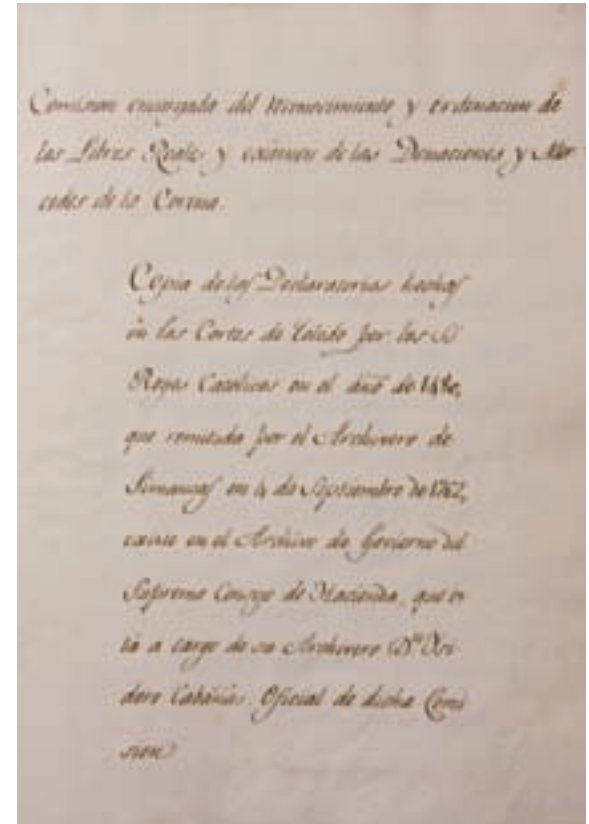 Comision encargada del reconocimiento y ordenacion de
los Libros Reales y exámen de las Donaciones y Mer
cedes de la Corona.
Copia de las Declaratorias hechas
en las Cortes de Toledo por los S.S.
Reyes Catolicos en el año de 1480,
que remitida por el Archivero de
Simancas en 4 de Septiembre de 1762,
existe en el Archivo de Govierno del
Supremo Consejo de Hacienda, que es
tá a cargo de su Archivero Dn Ysi
doro Cabañas Oficial de dicha Comi
sion